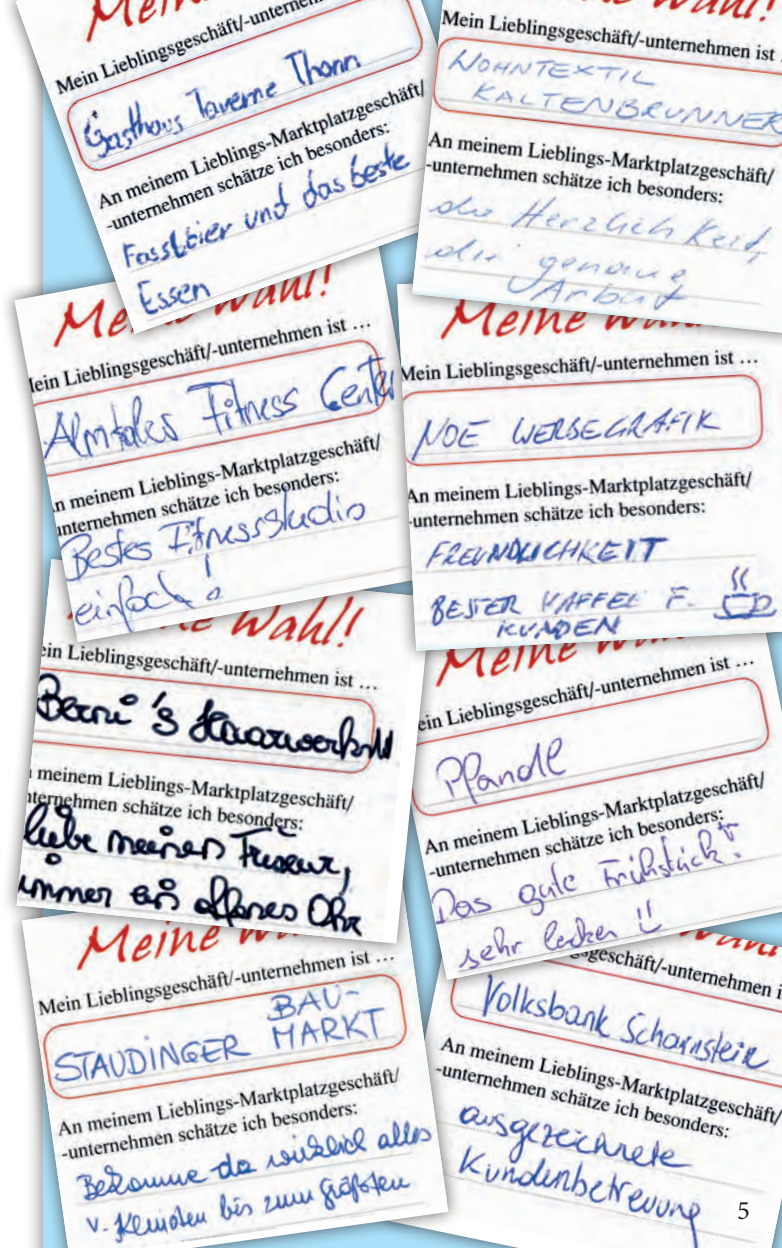 Meine
Mein Lieblingsgeschäft/-unternehmen
Gasthaus Taverne Thonn
An meinem Lieblings-Marktplatzgeschäft/
-unternehmen schätze ich besonders:
Fassbier und das beste
Essen
Wahl!
Mein Lieblingsgeschäft/-unternehmen ist
WOHNTEXTIL
KALTENBRUNNER
An meinem Lieblings-Marktplatzgeschäft/
-unternehmen schätze ich besonders:
die Herzlichkeit,
die genaue
Arbeit
Meine Wahl!
Mein Lieblingsgeschäft/-unternehmen ist ...
Almtaler Fitness Center
An meinem Lieblings-Marktplatzgeschäft/
-unternehmen schätze ich besonders:
Bestes Fitnessstudio
einfach!
Meine Wahl
Mein Lieblingsgeschäft/-unternehmen ist ...
NOE WERBEGRAFIK
An meinem Lieblings-Marktplatzgeschäft/
-unternehmen schätze ich besonders:
FREUNDLICHKEIT
BESTER KAFFEE F.
KUNDEN
Wahl!
ein Lieblingsgeschäft/-unternehmen ist ...
Berni's Haarwerkst
meinem Lieblings-Marktplatzgeschäft/
nternehmen schätze ich besonders:
liebe meinen Friseur,
immer ein offenes Ohr
Meine
ein Lieblingsgeschäft/-unternehmen ist ...
Pfandl
An meinem Lieblings-Marktplatzgeschäft/
-unternehmen schätze ich besonders:
Das gute Frühstück!
sehr lecker !!
Meine
Mein Lieblingsgeschäft/-unternehmen ist ...
STAUDINGER BAU-
MARKT
An meinem Lieblings-Marktplatzgeschäft/
-unternehmen schätze ich besonders:
Bekomme da wirklich alles
v. Kleinsten bis zum größten
sgeschäft/-unternehmen i
Volksbank Scharnstein
An meinem Lieblings-Marktplatzgeschäft/
-unternehmen schätze ich besonders:
ausgezeichnete
Kundenbetreuung
5